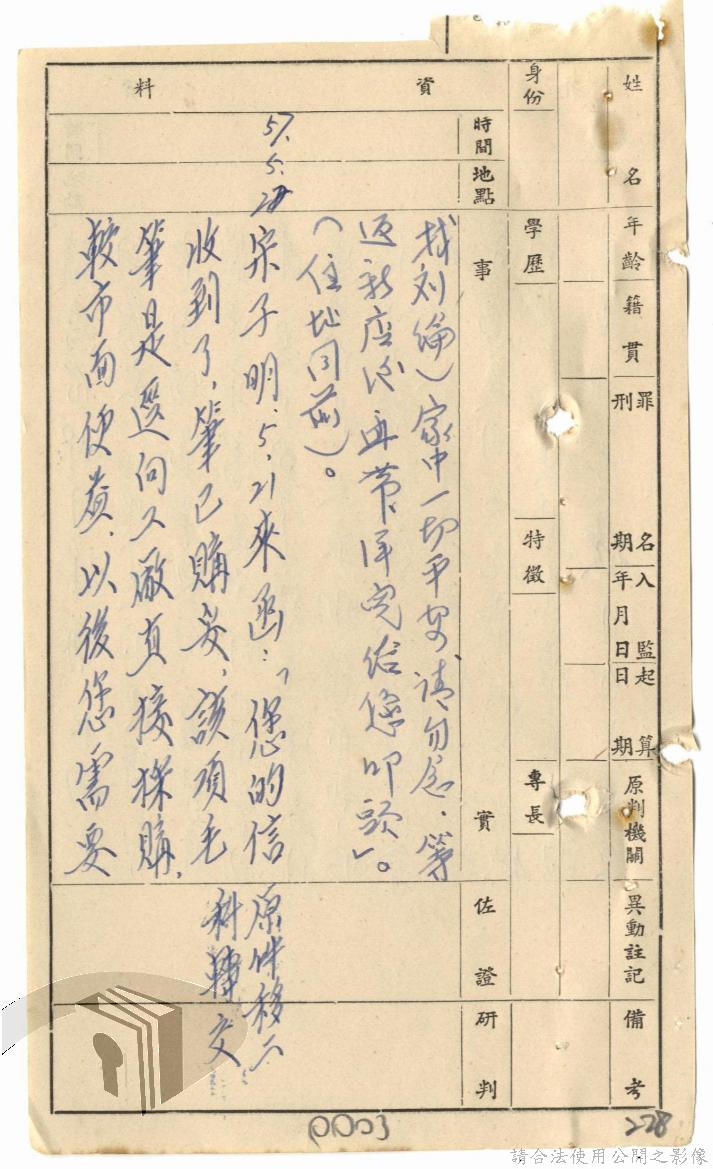 姓名
年齡
籍貫
罪名
刑期
入監
年月日
起算
日期
原判機關
異動註記
備考
身份
學歷
特徵
專長
資料
時間
地點
事實
佐證
研判
找刘倫)家中一切平安請勿念,等
返新店後再帶 給您叩頭」。
(住址同前)。
57.5.28
宋子明,5,21來函:「您的信
收到了,筆已購妥,該項毛
筆是逕向工廠直接採購,
較市面便宜,以後您需要
原件移六
科轉交
0003
228
請合法使用公開之影像